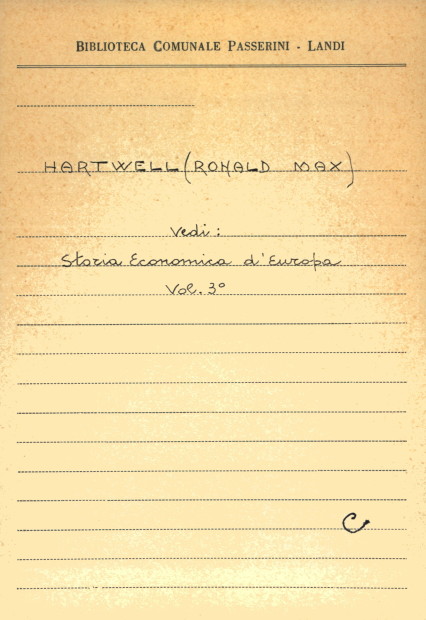 BIBLIOTECA COMUNALE PASSERINI - LANDI
HARTWELL (RONALD MAX)
Vedi:
Storia Economica d'Europa
Vol. 3°
C